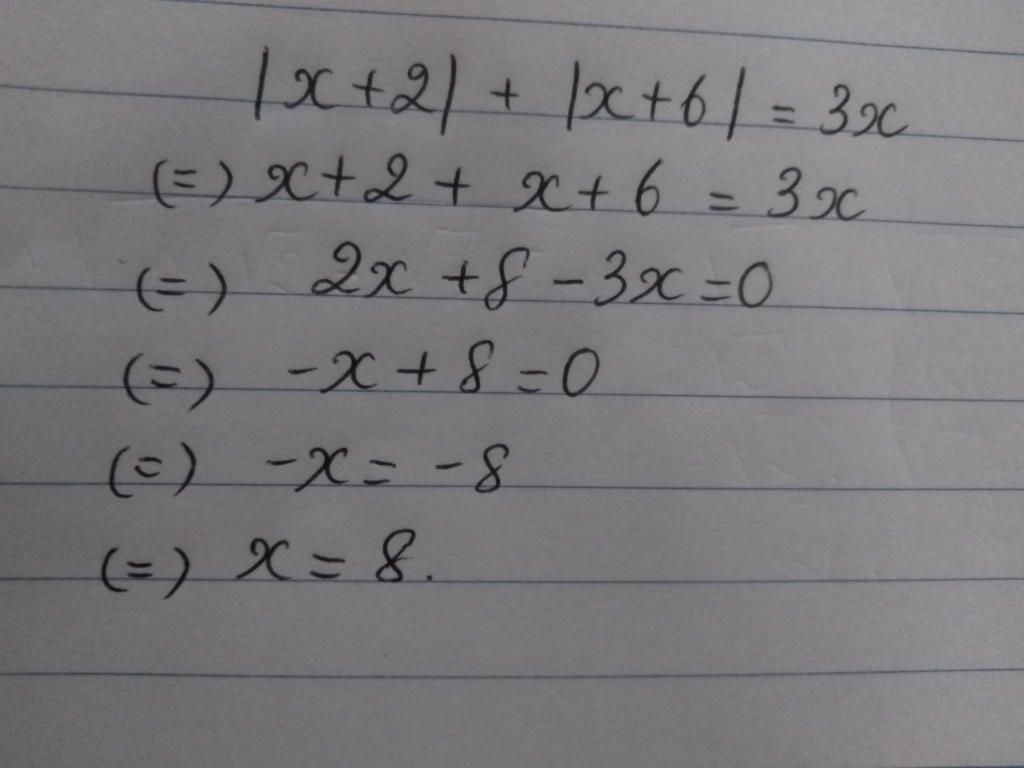 |x+2| + |x+6| = 3x
(=) x+2 + x+6 = 3x
(=) 2x +8 -3x=0
(=) -x+8=0
(=) -x= -8
(=) x = 8.